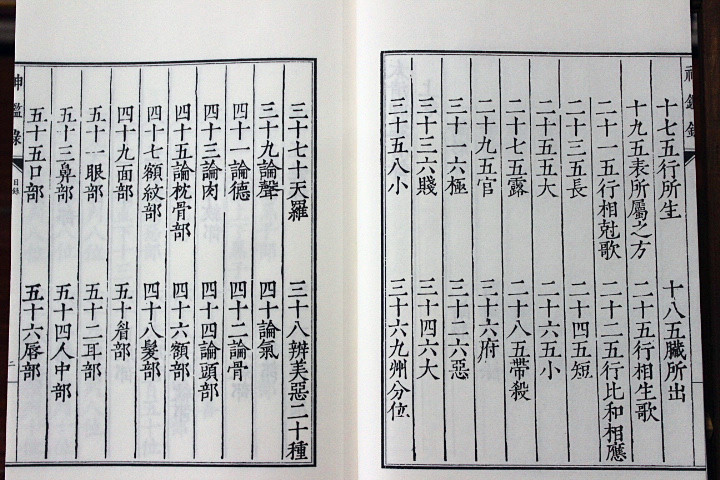 十七五行所生　十八五臟所出
十九五表所屬之方　二十五行相生歌
二十一五行相尅歌　二十二五行比和相應
二十三五長　二十四五短
二十五五大　二十六五小
二十七五露　二十八五帶殺
二十九五官　三十六府
三十一六極　三十二六惡
三十三六賤　三十四六大
三十五八小　三十六九州分位
三十七十天羅　三十八辨美惡二十種
三十九論聲　四十論氣
四十一論德　四十二論骨
四十三論肉　四十四論頭部
四十五論枕骨部　四十六額部
四十七額紋部　四十八髮部
四十九面部　五十睂部
五十一眼部　五十二耳部
五十三鼻部　五十四人中部
五十五口部　五十六唇部
神鑑錄　目錄　二